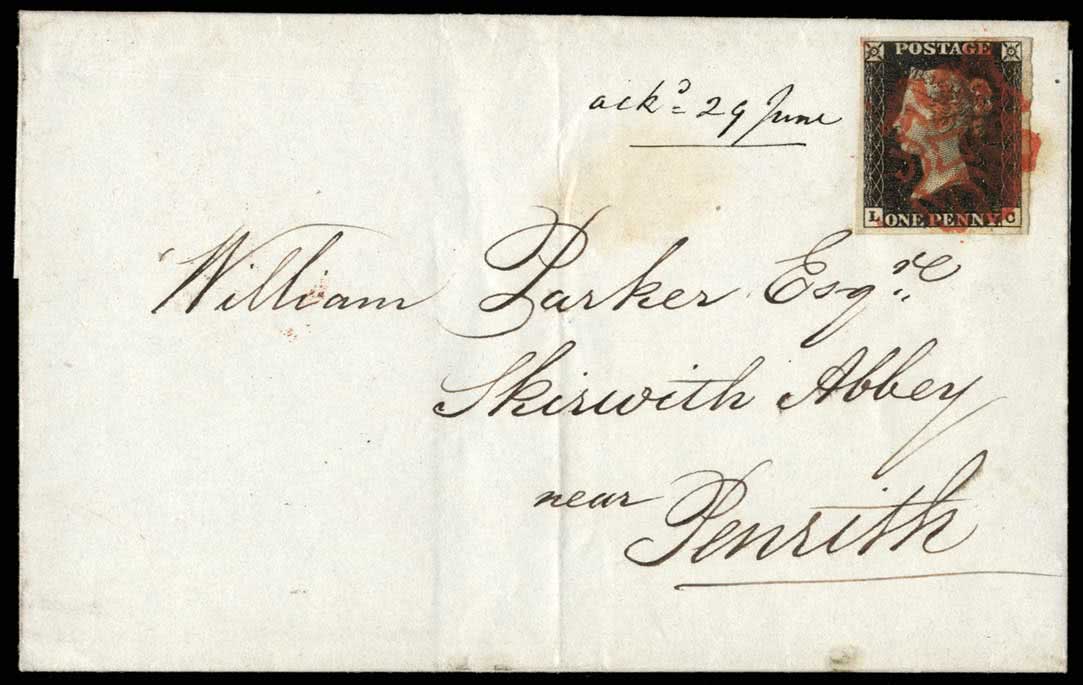 POSTAGE
ackd = 29 June
L ONE PENNY. C
William Parker Esqre
Skirwith Abbey
near
Penrith